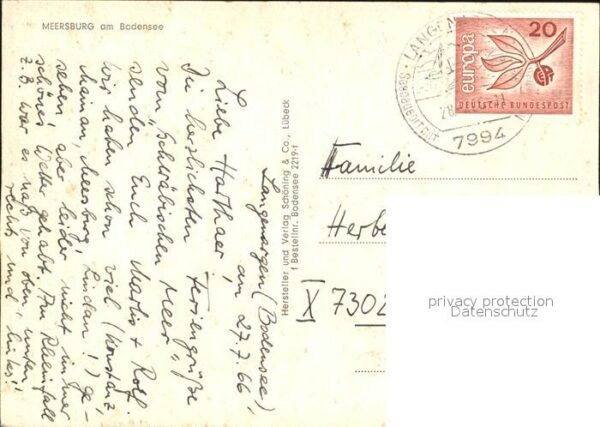 MEERSBURG am Bodensee
Langenargen (Bodensee),
am 27.7.66
Liebe
Die herzlichsten Feriengrüße
vom "Schwäbischen Meer"
senden Euch Martis + Rolf.
Wir haben schon viel (Konstanz,
Mainau, Meersburg, Lindau!) ge-
sehen, aber leider nicht immer
schönes Wetter gehabt. Am Rheinfall
z.B. war es naß von oben, unten,
rechts und links!
Hersteller und Verlag Schöning & Co., Lübeck
Bestellnr. Bodensee 2219
LANGEN
7994
europa
20
DEUTSCHE BUNDESPOST
Familie
Herbe
X 7302
privacy protection
Datenschutz